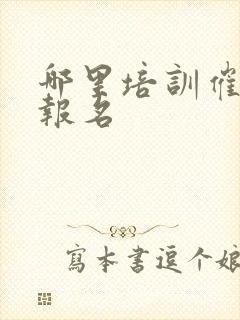 哪里培訓催
報名
寫本書逗个娘